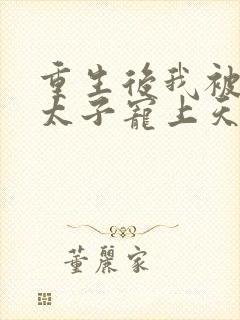 重生後我被
太子寵上天
董麗家